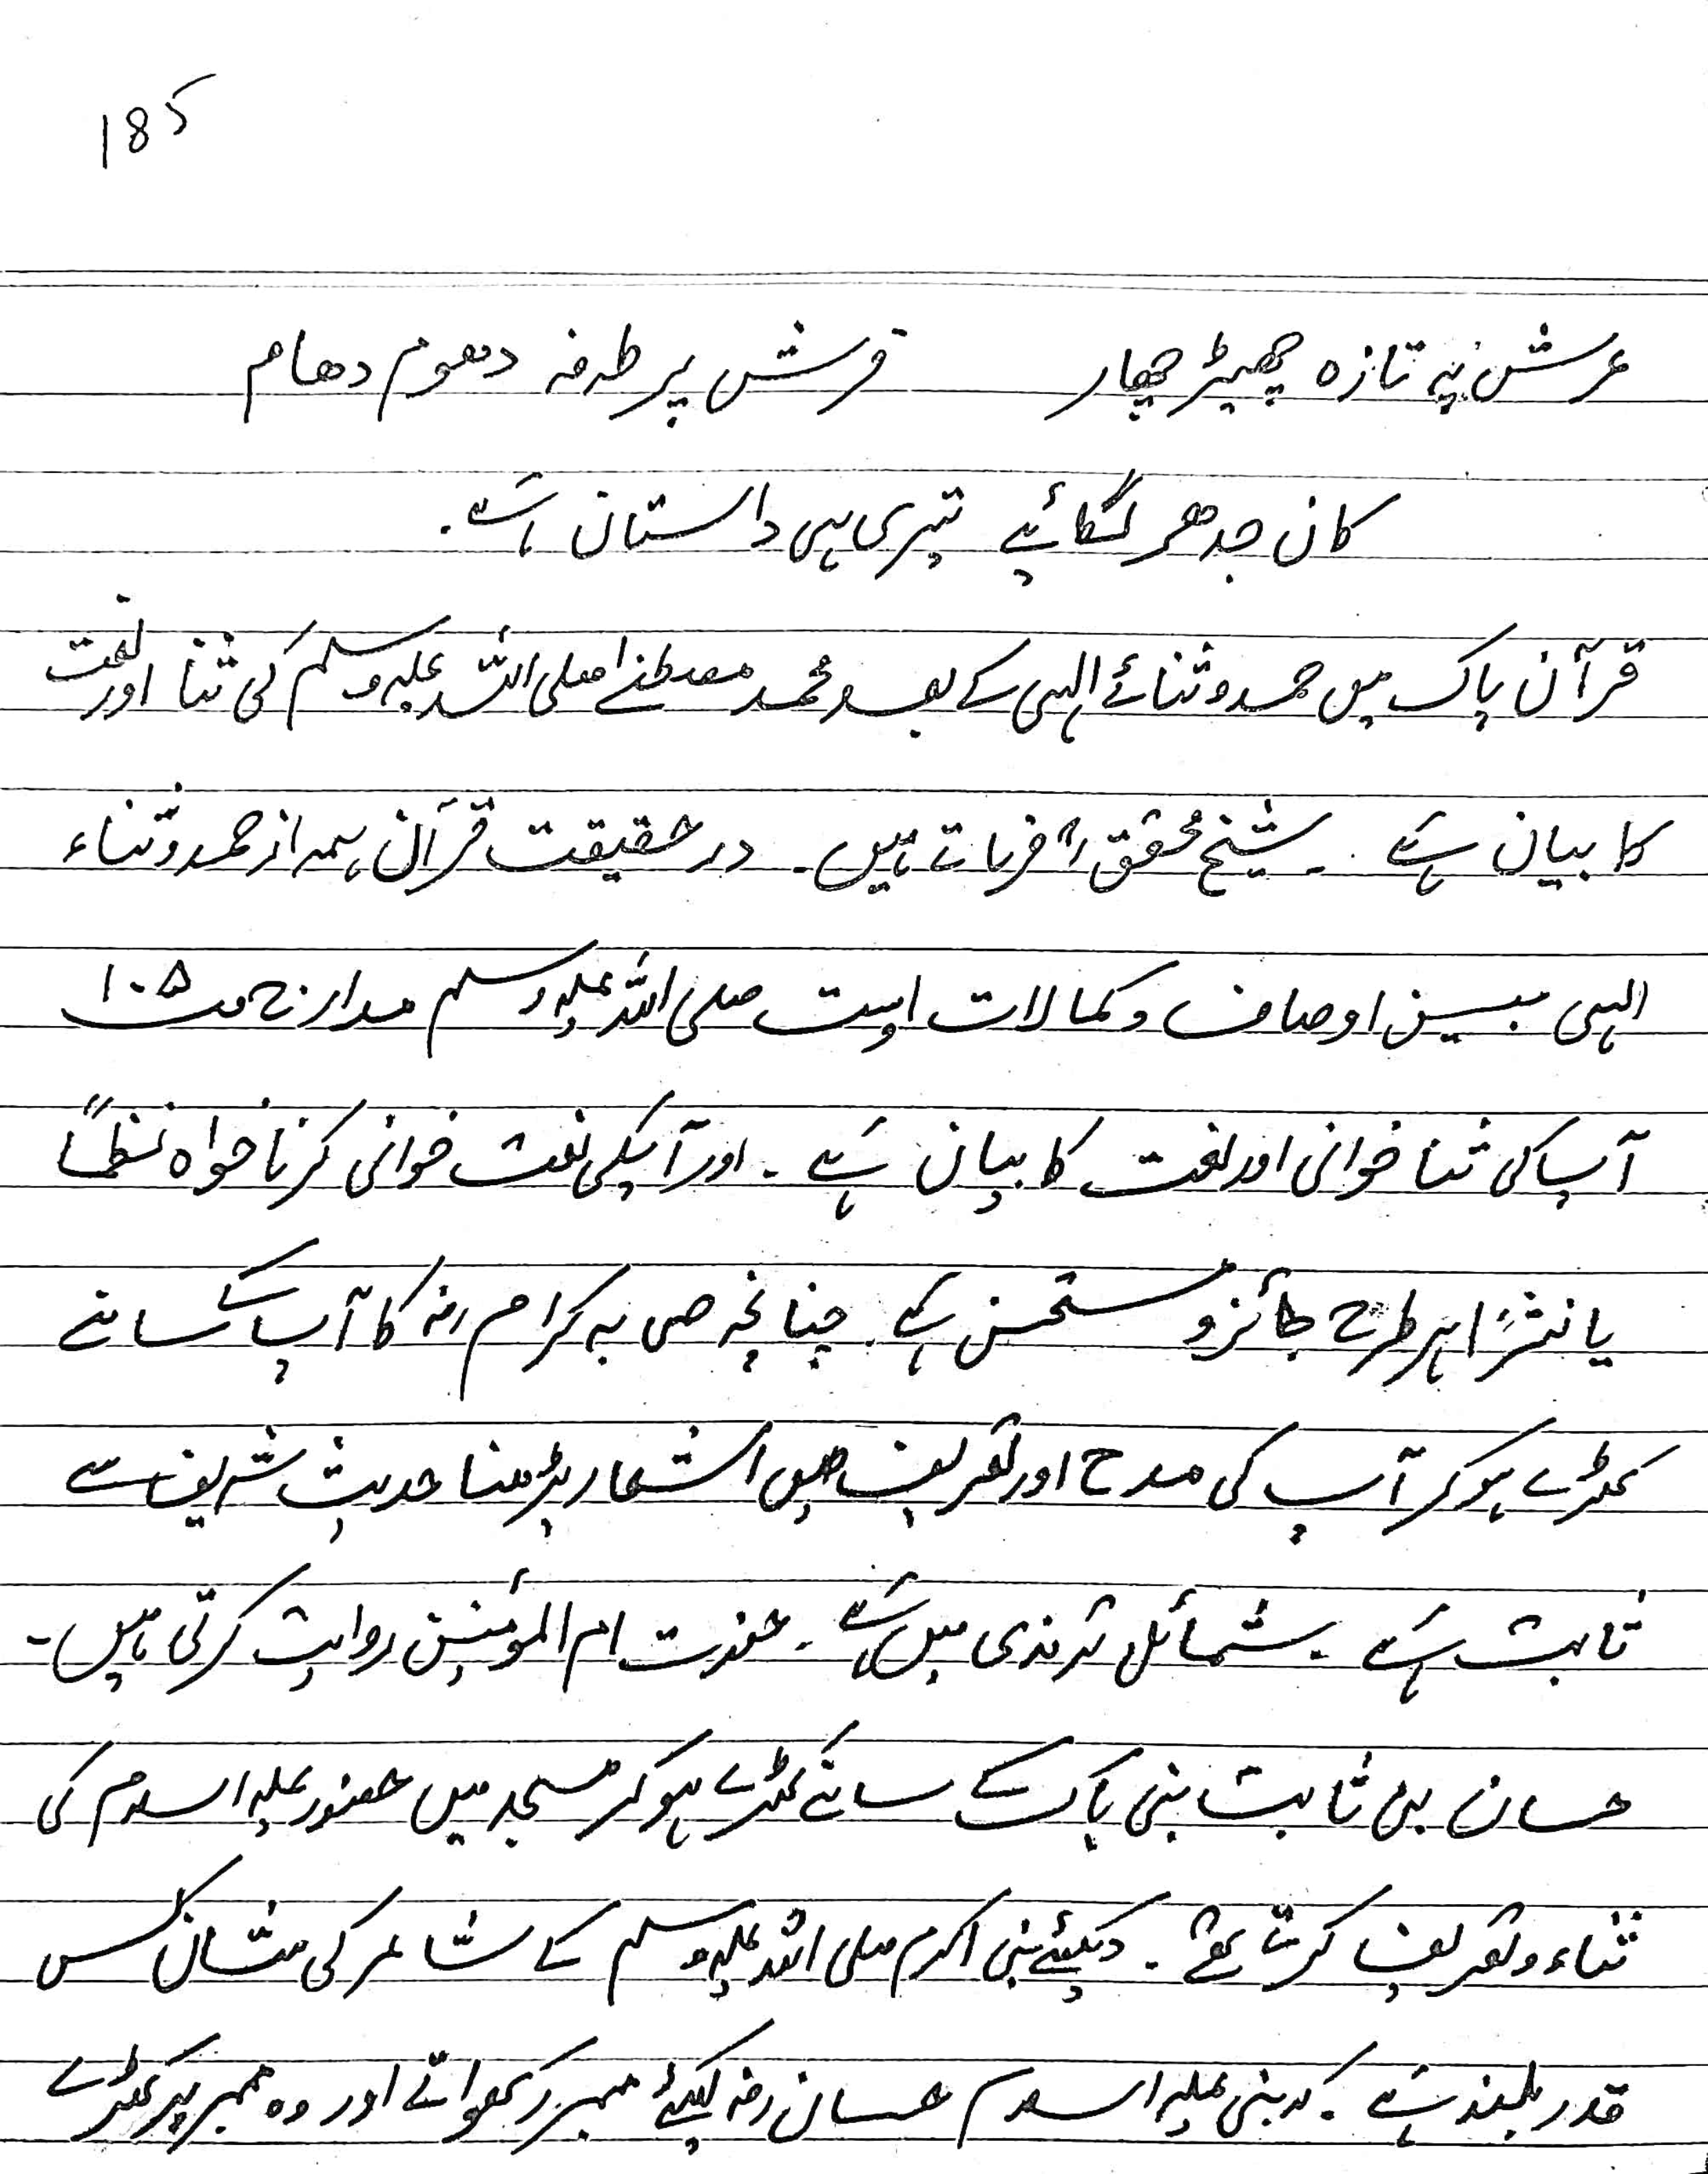 185
عرش پہ تازہ چھیڑ چھاڑ فرش پر طرفہ دھوم دھام
کان جدھر لگائیے تیری ہی داستان ہے۔
قرآن پاک میں حمد و ثنائے الہی کے بعد محمد مصطفے صلی اللہ علیہ وسلم کی ثنا اور نعت
کا بیان ہے ۔ شیخ محقق رح فرماتے ہیں۔ در حقیقت قرآن ہمہ از حمد و ثناء
الہی مبین اوصاف و کمالات اوست صلی اللہ علیہ وسلم مدارج ص ۱۰۵
آپ کی ثنا خوانی اور نعت کا بیان ہے ۔ اور آپکی نعت خوانی کرنا خواہ نظماً
یا نثرًا ہر طرح جائز و مستحسن ہے ۔ چنانچہ صحابہ کرام رض کا آپ کے سامنے
کھڑے ہو کر آپ کی مدح اور تعریف میں اشعار پڑھنا حدیث شریف سے
ثابت ہے ۔ شمائل ترمذی میں ہے ۔ حضرت ام المؤمنین روایت کرتی ہیں ۔
حسان بن ثابت نبی پاک کے سامنے کھڑے ہو کر مسجد میں حضور علیہ السلام کی
ثناء و تعریف کرتے تھے ۔ دیکھئے نبی اکرم صلی اللہ علیہ وسلم کے شاعر کی مثال کس
قدر بلند ہے ۔ کہ نبی علیہ السلام حسان رض لیکئے ممبر رکھواتے اور وہ ممبر پر کھڑے